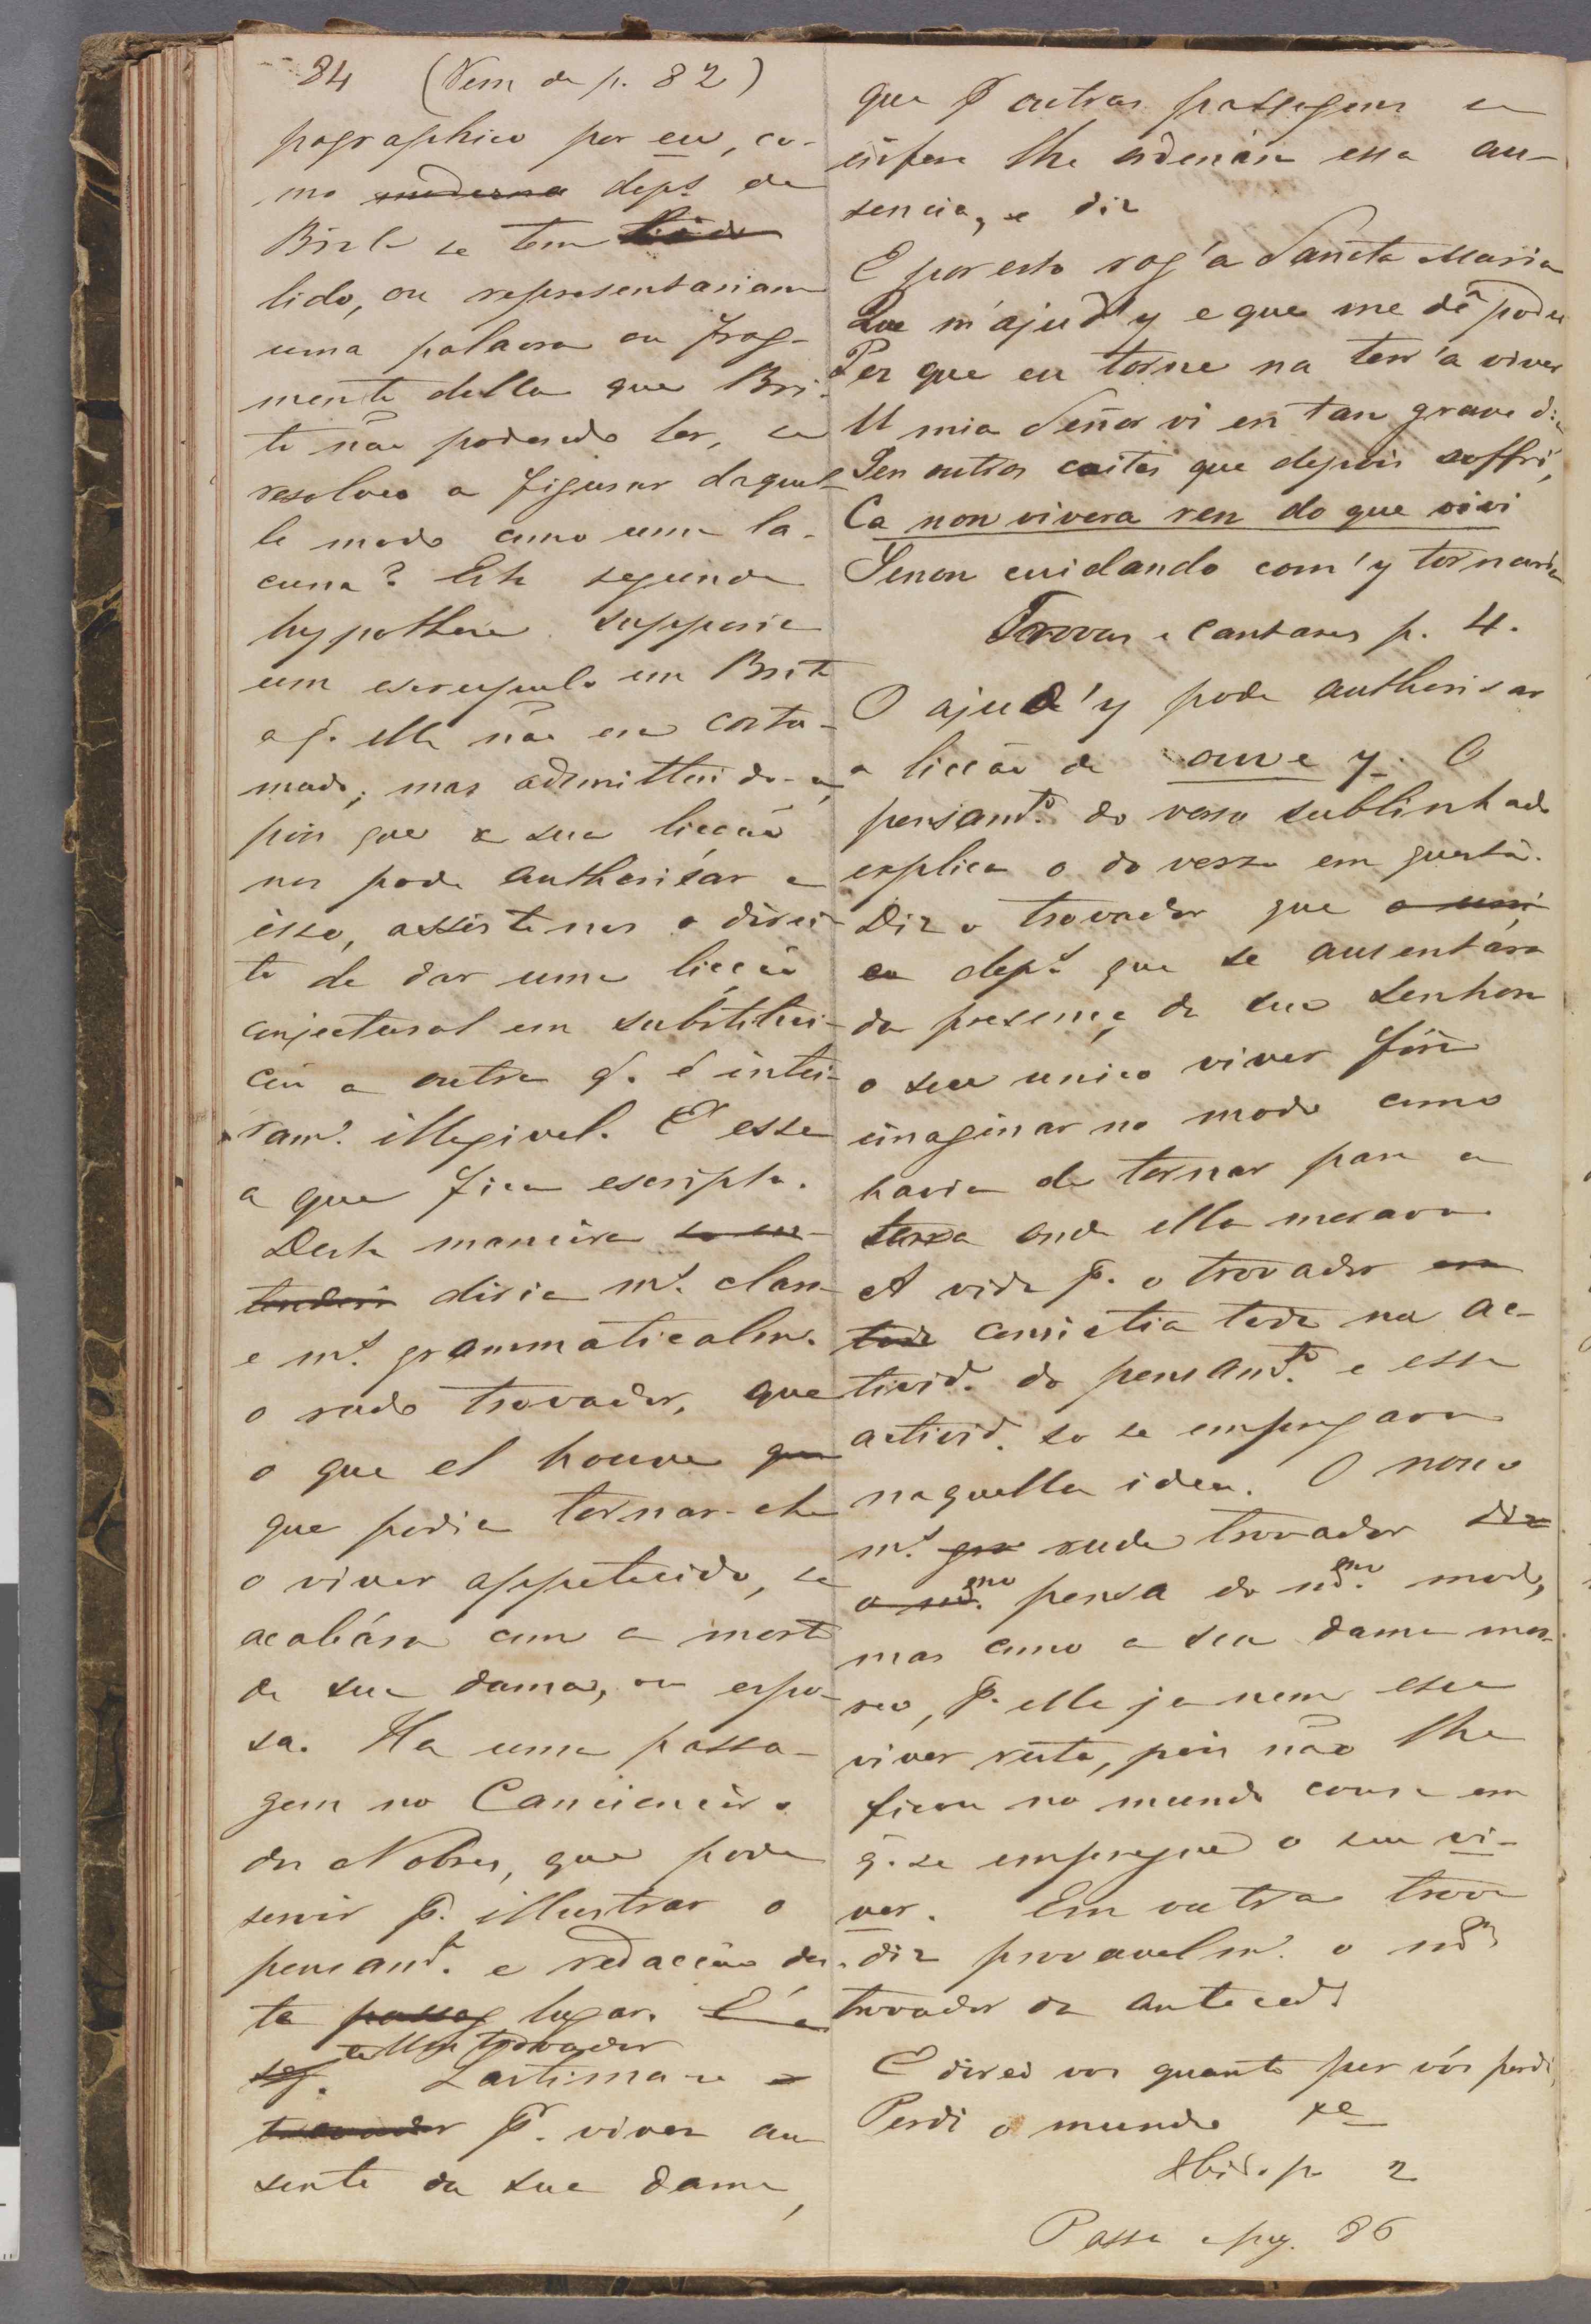 84 (Vem da p. 82)
pographico por eu, co-
mo moderna dep.s de
Brito se tem lido
lido, ou representariam
uma palavra ou frag-
mento della que Bri-
to não podendo ler, se
resolveo a figurar daquel-
le modo como uma la-
cuna? Esta segunda
hypothese supporia
um escrupulo em Brito
a q. elle não era costu-
mado; mas admittindo-a,
pois que a sua licção
nos pode authorisar a
isso, assiste nos o direi-
to de dar uma licção
conjectural em substitui-
ção a outra q. é intei-
ram.e illegivel. É essa
a que fica escripta.
Desta maneira se en-
tenderia diria m.s clara
e m.s grammaticalm.e
o rudo trovador, que
o que el houve que
que podia tornar-lhe
o viver appetecido, se
acabára com a morte
de sua dama, ou espo-
sa. Ha uma passa-
gem no Cancioneiro
dos Nobres, que pode
servir p.a illustrar o
pensam.to e redacção des-
te passag lugar. É a
seg. alli um trovador
Lastima-se o
trovador p.r viver au
sente da sua dama,
que p.r outras passagens se
infere lhe ordenára essa au-
sencia, e diz
E por esto rog'a Sancta Maria
Que m'ajud'y e que me dê poder
Per que eu torne na terr'a viver
U mia Señor vi en tan grave dia
Sen outras coitas que depois soffrí,
Ca non vivera ren do que vivi
Senon cuidando com'y tornaria
Trovas e Cantares p. 4.
O ajud'y pode authorisar
a licção de ouve y. O
pensam.to do verso sublinhado
explica o do verso em questão.
Diz o trovador que o uni
co dep.s que se ausentára
da presença de sua senhora
o seu unico viver fôra
imaginar no modo como
havia de tornar para a
terra onde ella morava
A vida p.a o trovador era
toda consistia toda na ac-
tivid.e do pensam.to e essa
activid.e só se empregava
naquella idea. O nosso
m.s gro rude trovador diz
o mesmo pensa do mesmo modo,
mas como a sua dama mor-
reo, p.a elle ja nem esse
viver resta, pois não lhe
ficou no mundo cousa em
q. se empregue o seu vi-
ver. Em outra trova
diz provavelm.e o mesmo
trovador da anteced.e
E direi vos quanto per vós perdi,
Perdi o mundo &c
Ibid. p. 2
Passa a pag. 86